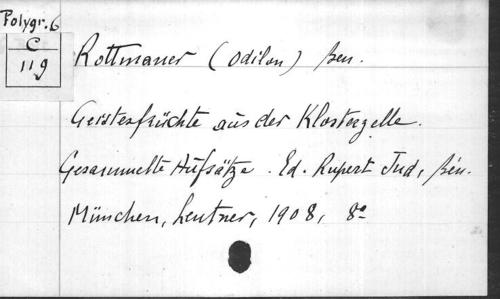 Polygr. 6
C
119
Rottmaner (Odilon) ben.
Geistesfrüchte aus der Klosterzelle.
Gesammelte Aufsätze. Ed. Rupert Jud, bén.
München, Lentner, 1908, 8°